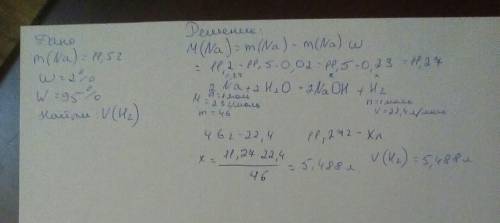 Дано
m(Na)=11,5г
W=2%
W=95%
Найти: V(H2)
Решение:
M(Na)=m(Na)-m(Na)·W
=11,2-11,5·0,02=11,5-0,23=11,27
2Na+2H2O=2NaOH+H2
M=23г/моль
m=46
V=22,4л/моль
46г-22,4 11,27г-Xл
x=11,27·22,4/46=5,488л V(H2)=5,488л